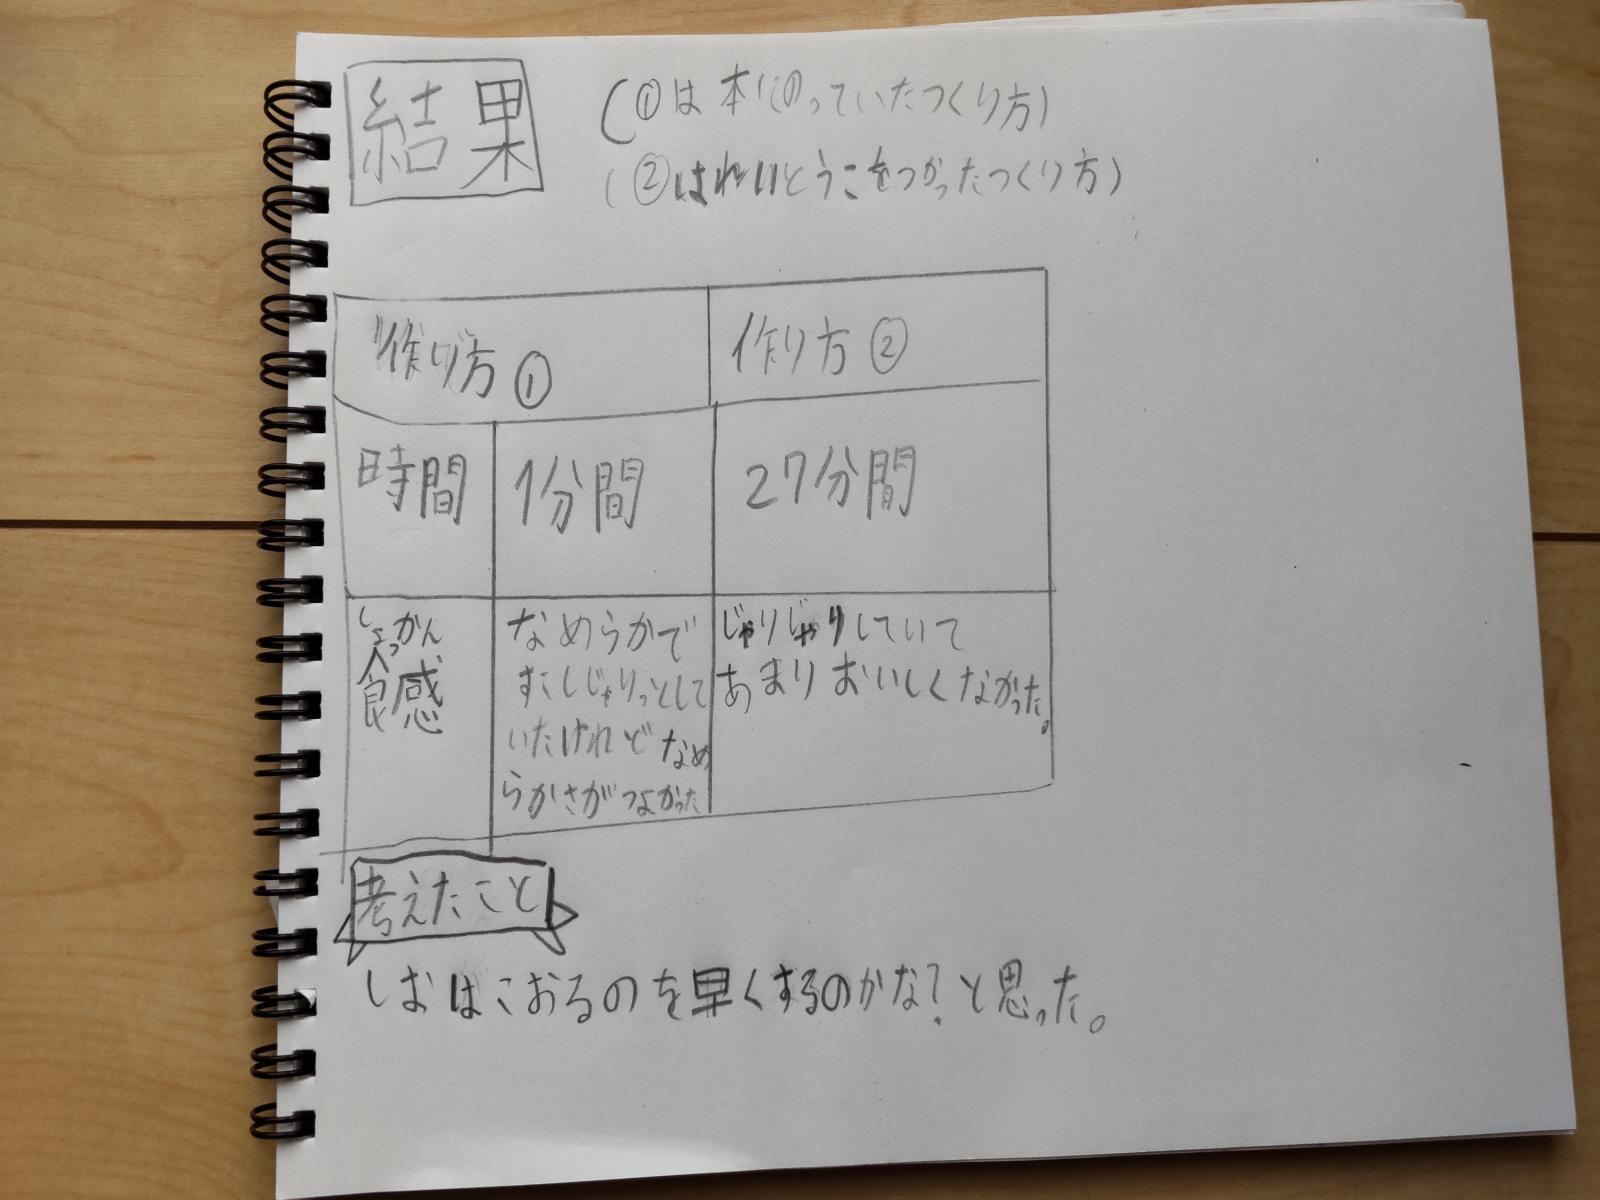 結果
(①は本にのっていたつくり方)
(②はれいとうこをつかったつくり方)
作り方①
作り方②
時間
1分間
27分間
しょっかん
食感
なめらかで
すこしじゃりっとして
いたけれどなめ
らかさがつよかった
じゃりじゃりしていて
あまりおいしくなかった。
考えたこと
しおはこおるのを早くするのかな?と思った。